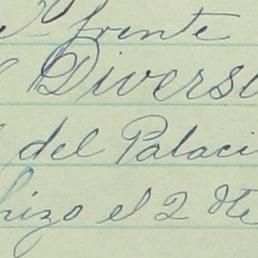 frente
Divers
del Palaci
hizo el 2 dte